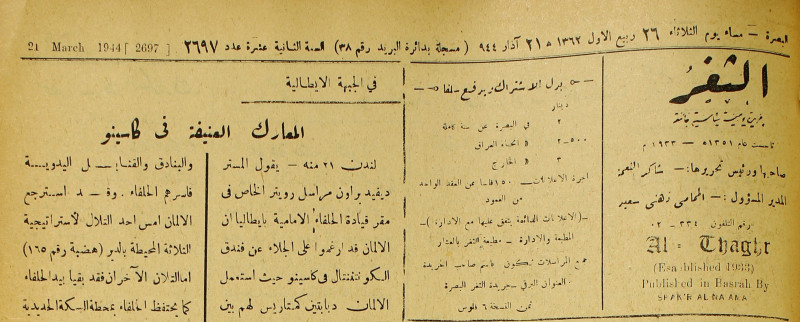 البصرة – مساء يوم الثلاثاء ٢٦ ربيع الاول ١٣٦٣ ه ٢١ آذار ٩٤٤ (مسجلة بدائرة البريد رقم ٣٨) السنة الثانية عشرة عدد ٢٦٩٧ [2697] 21 March 1944
الثغر
جريدة يومية سياسية جامعة
تأسست عام ١٣٥١ه – ١٩٣٣ م
صاحبها ورئيس تحريرها:– شاكر النعمة
المدير المسؤول:– المحامي زهني سعير
رقم التلفون ٣٣٤ – ٠٢
Al = Thaghr
(Established 1933)
Published in Basrah By
SHAKIR AL-NAAMA
بدل الاشتراك ويدفع سلفا
دينار
٢ في البصرة عن سنة كاملة
٢–٥٠٠ انحاء العراق
٣ الخارج
اجرة الاعلانات – ١٥٠ فلسا عن العقد الواحد
من العمود
–(الاعلانات الدائمة يتفق عليها مع الادارة)–
المطبعة والادارة – مطبعة الثغر بالعشار
جميع المراسلات تكون باسم صاحب الجريدة
العنوان البرقي – جريدة الثغر البصرة
ثمن النسخة ٦ فلوس
في الجبهة الايطالية
المعارك العنيفة في كاسينو
لندن ٢١ منه – يقول المستر
ديفيد براون مراسل رويتر الخاص في
مقر قيادة الحلفاء الامامية بايطاليا ان
الالمان قد ارغموا على الجلاء عن فندق
السكوننتنتال في كاسينو حيث استعمل
الالمان دبابتين كمتاريس لهم بين
والبنادق والقنابل اليدوية
قاسرهم الحلفاء. وقد استرجع
الالمان امس احد التلال لأستراتيجية
الثلاثة المحيطة بالدير (هضبة رقم ١٦٥)
اما التلان الآخران فقد بقيا بيد الحلفاء
كما يحتفظ الحلفاء بمحطة السكة الحديدية